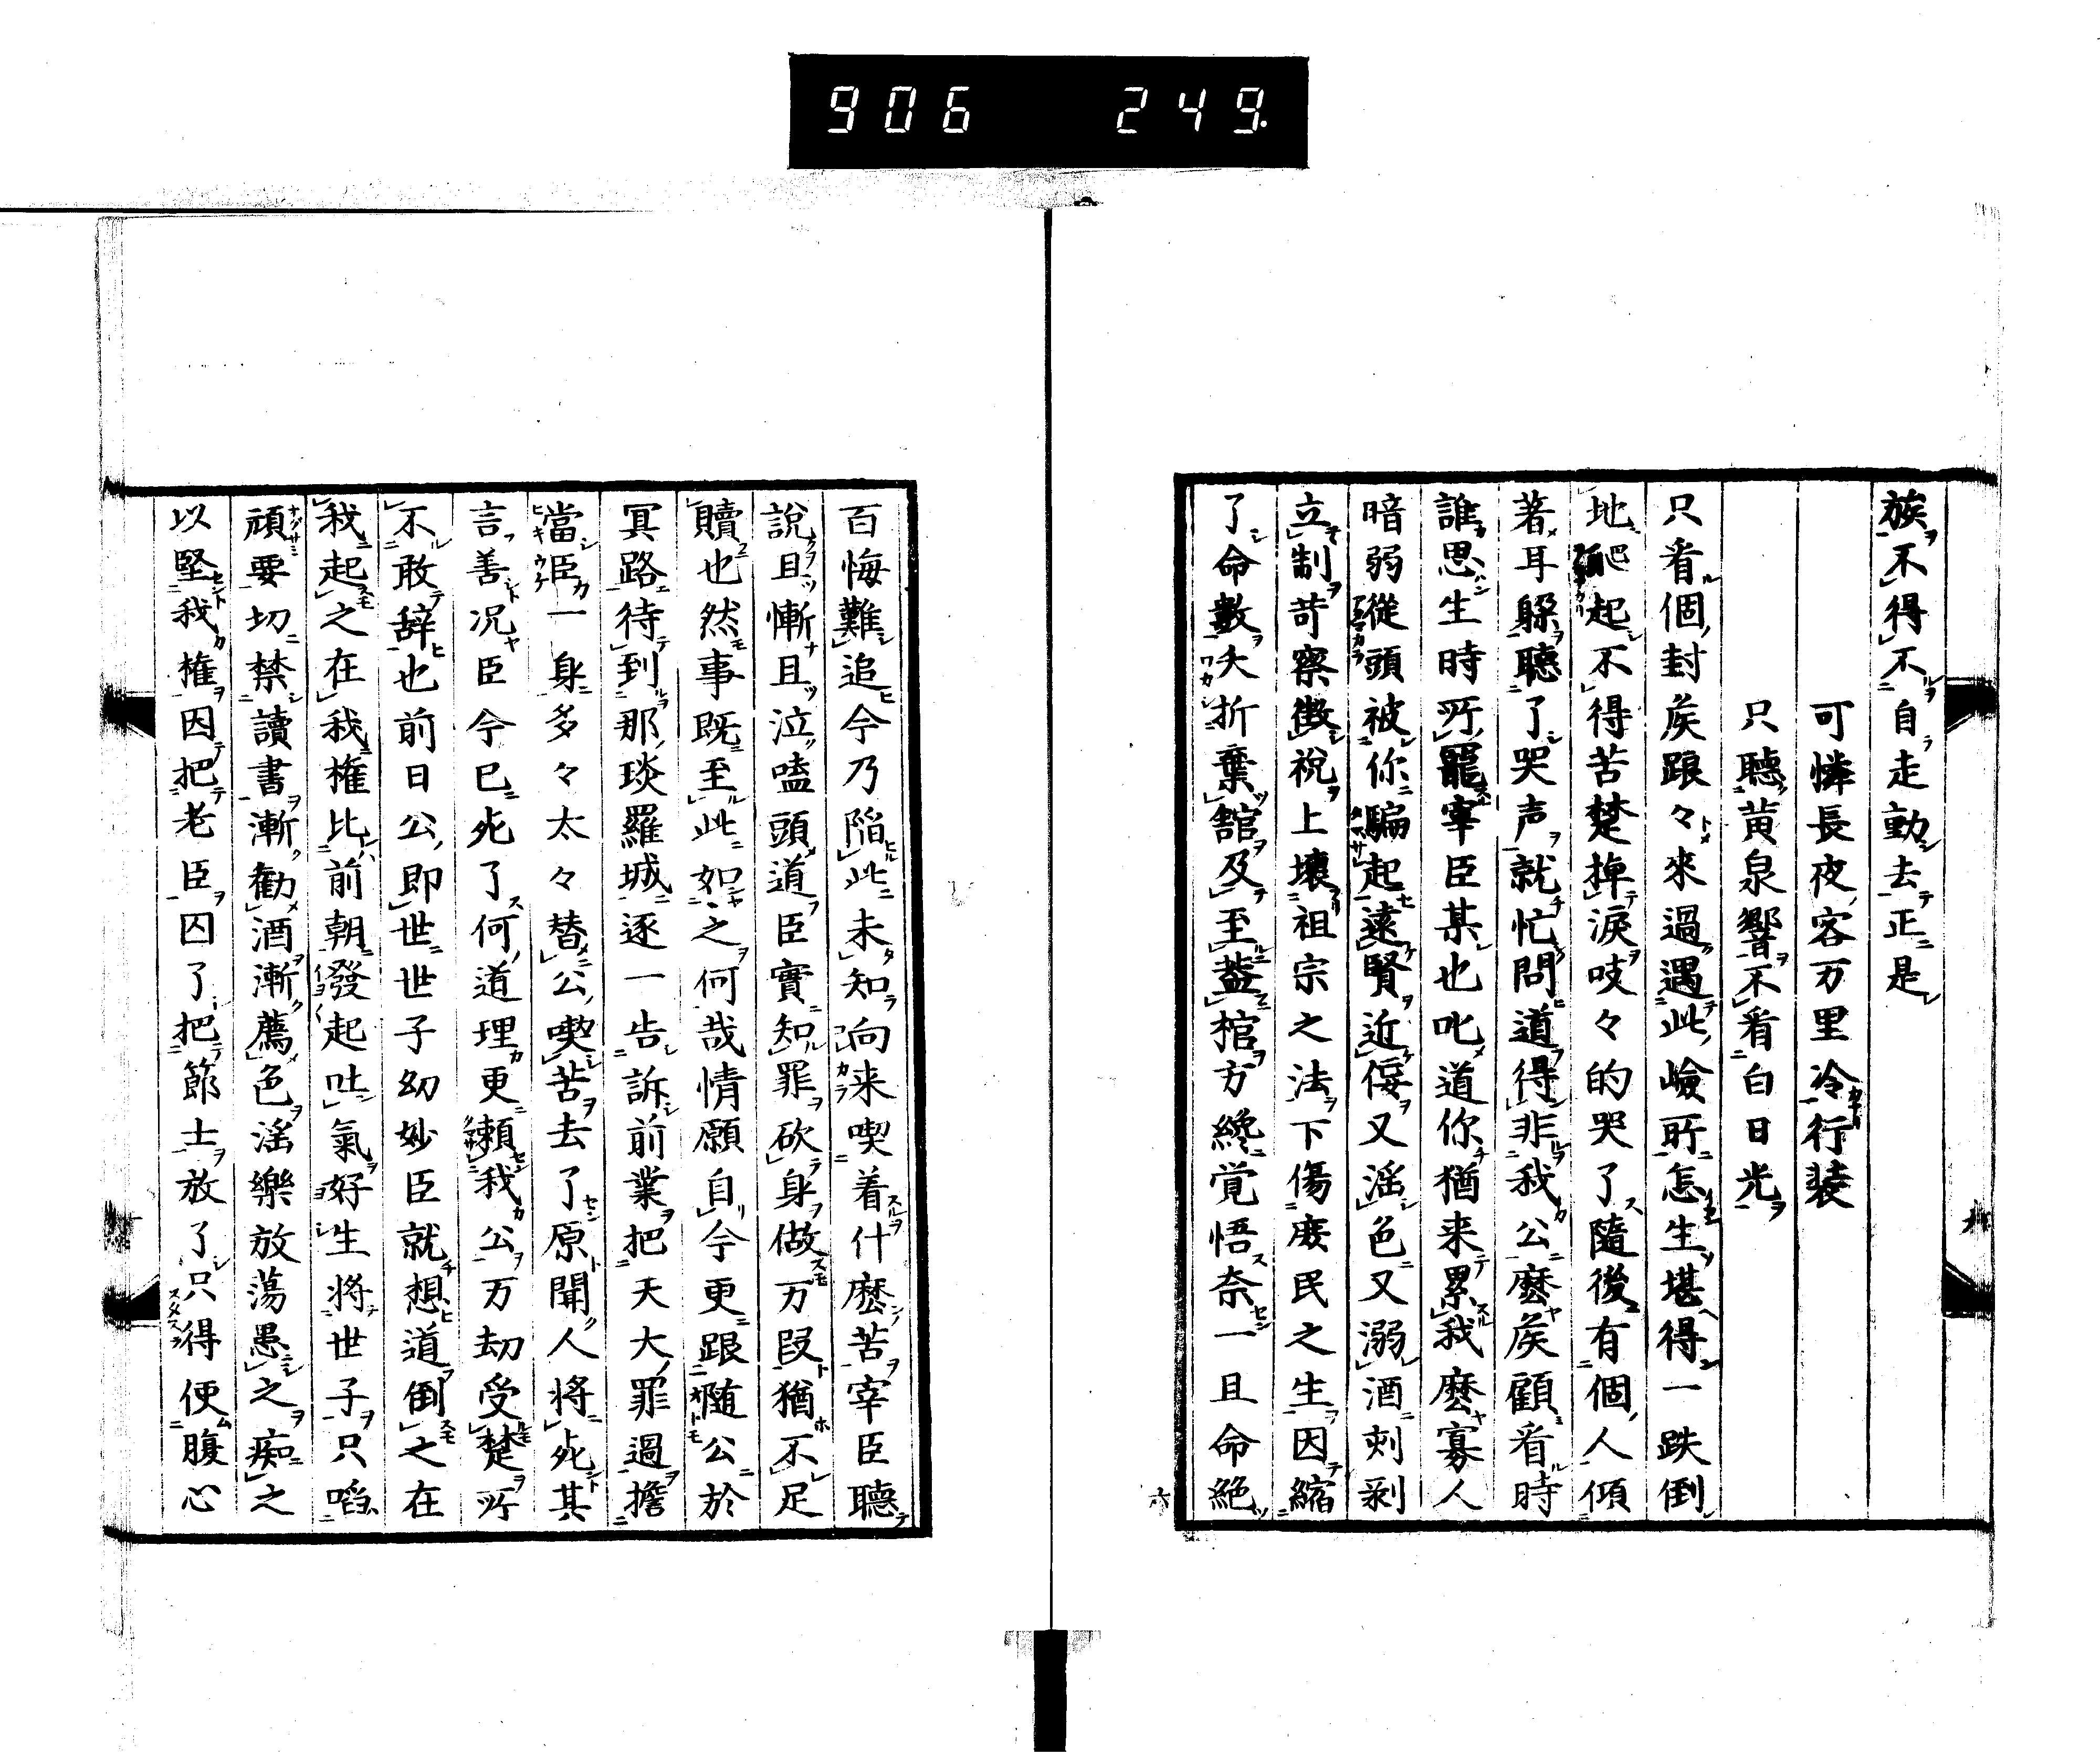 906 249.
族不得不自走動去正是
可憐長夜客万里冷行装
只聴黄泉響不看白日光
只看個封矦踉々來過遇此嶮所怎生堪得一跌倒
地爬起不得苦楚掉涙吱々的哭了隨後有個人傾
著耳躱聴了哭声就忙問道得非我公麽矦顧看時
誰思生時所寵宰臣某也叱道你猶来累我麽寡人
暗弱從頭被你騙起遠賢近侫又滛色又溺酒刺剥
立制苛察徴税上壊祖宗之法下傷庶民之生因縮
了命數夭折棄舘及至蓋棺方纔覚悟奈一旦命絶
百悔難追今乃陥此未知向来喫着什麽苦宰臣聴
説且慚且泣嗑頭道臣實知罪砍身做万段猶不足
贖也然事既至此如之何哉情願自今更跟随公於
冥路待到那琰羅城逐一告訴前業把天大罪過擔
當臣一身多々太々替公喫苦去了原聞人将死其
言善况臣今已死了何道理更頼我公万劫受楚所
不敢辞也前日公即世世子幼妙臣就想道倒之在
我起之在我権比前朝發起吐氣好生将世子只啗
頑要切禁讀書漸勧酒漸薦色滛樂放蕩愚之痴之
以堅我権因把老臣囚了把節士放了只得便腹心